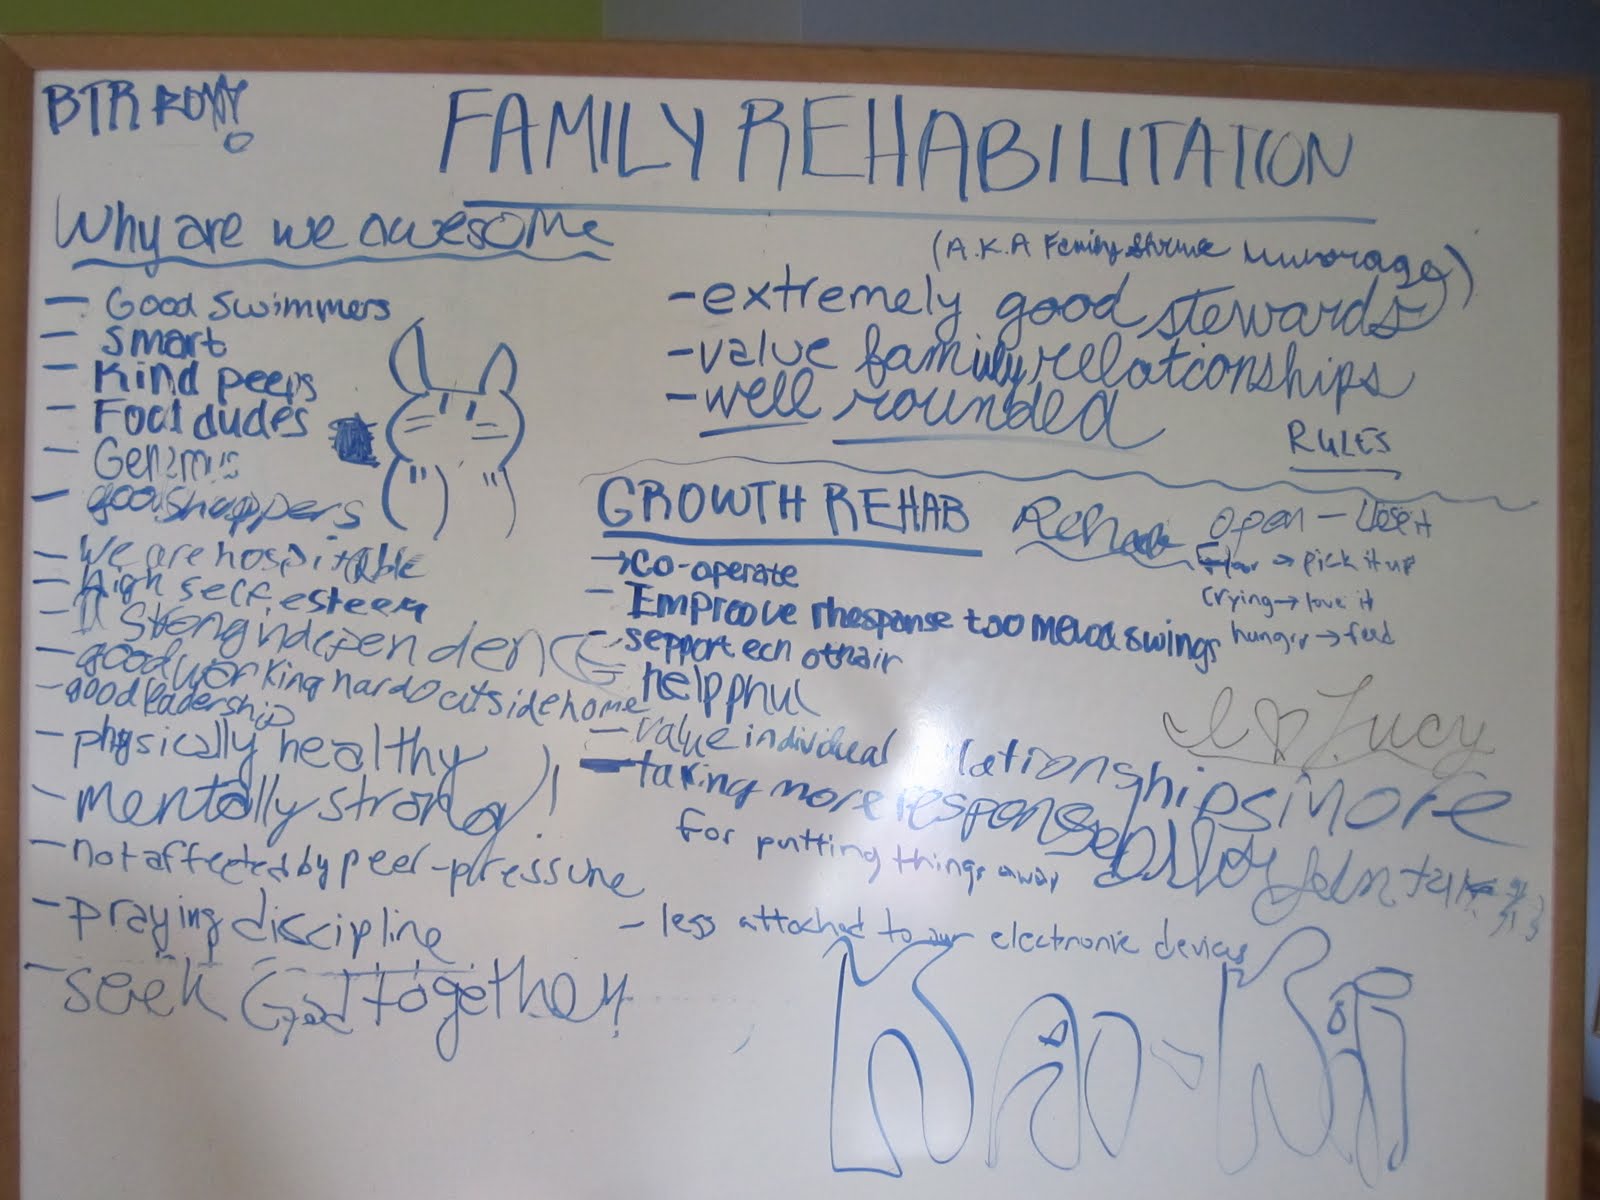 BTR
FAMILY REHABILITATION
Why are we awesome
(A.K.A Family
- Good swimmers
- smart
- Kind peeps
- dudes
- good shoppers
- We are hospitable
- high self, esteem
- Strong independence
- good working hard outside home
- good leadership
- physically healthy
- mentally strong!
- not affected by peer-pressure
- praying discipline
- seek God together!
- extremely good stewards
- value family relationships
- well rounded
GROWTH REHAB
→ co-operate
- Improove rhesponse too mood swings
- sepport ech othair
- helpphul
- value individual relationships more
- taking more
for putting things away
- less attached to our electronic devices
RULES
open - close it
Floor → pick it up
Crying → love it
hungry → feed
I ♡ Lucy